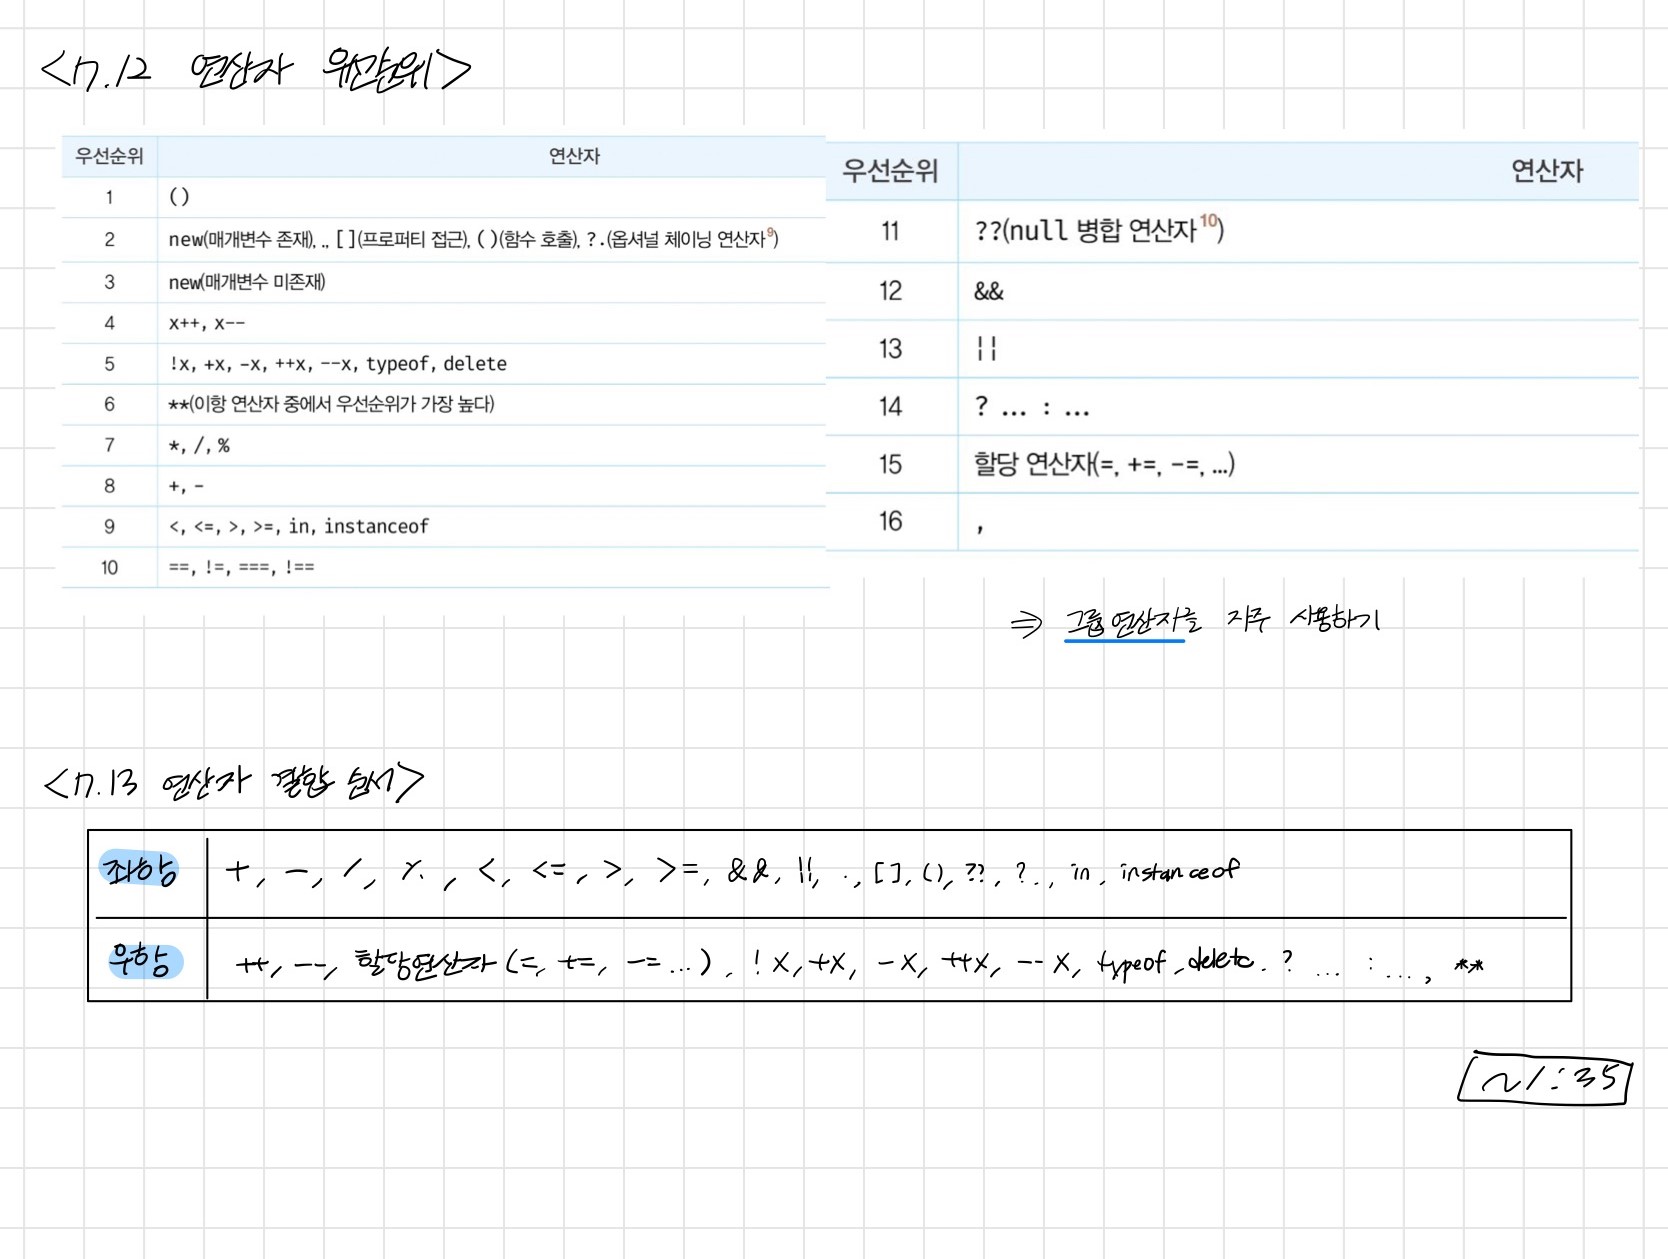 <7.12 연산자 우선순위>
우선순위 연산자
1 ()
2 new(매개변수 존재), ., [](프로퍼티 접근), ()(함수 호출), ?.(옵셔널 체이닝 연산자9)
3 new(매개변수 미존재)
4 x++, x--
5 !x, +x, -x, ++x, --x, typeof, delete
6 **(이항 연산자 중에서 우선순위가 가장 높다)
7 *, /, %
8 +, -
9 <, <=, >, >=, in, instanceof
10 ==, !=, ===, !==
우선순위 연산자
11 ??(null 병합 연산자10)
12 &&
13 ||
14 ? ... : ...
15 할당 연산자(=, +=, -=, ...)
16 ,
⇒ 그룹 연산자를 자주 사용하기
<7.13 연산자 결합 순서>
좌항 +, -, /, %, <, <=, >, >=, &&, ||, ., [], (), ??, ?., in, instanceof
우항 ++, --, 할당연산자 (=, +=, -= ...), !x, +x, -x, ++x, --x, typeof, delete, ? ... : ..., **
~1:35